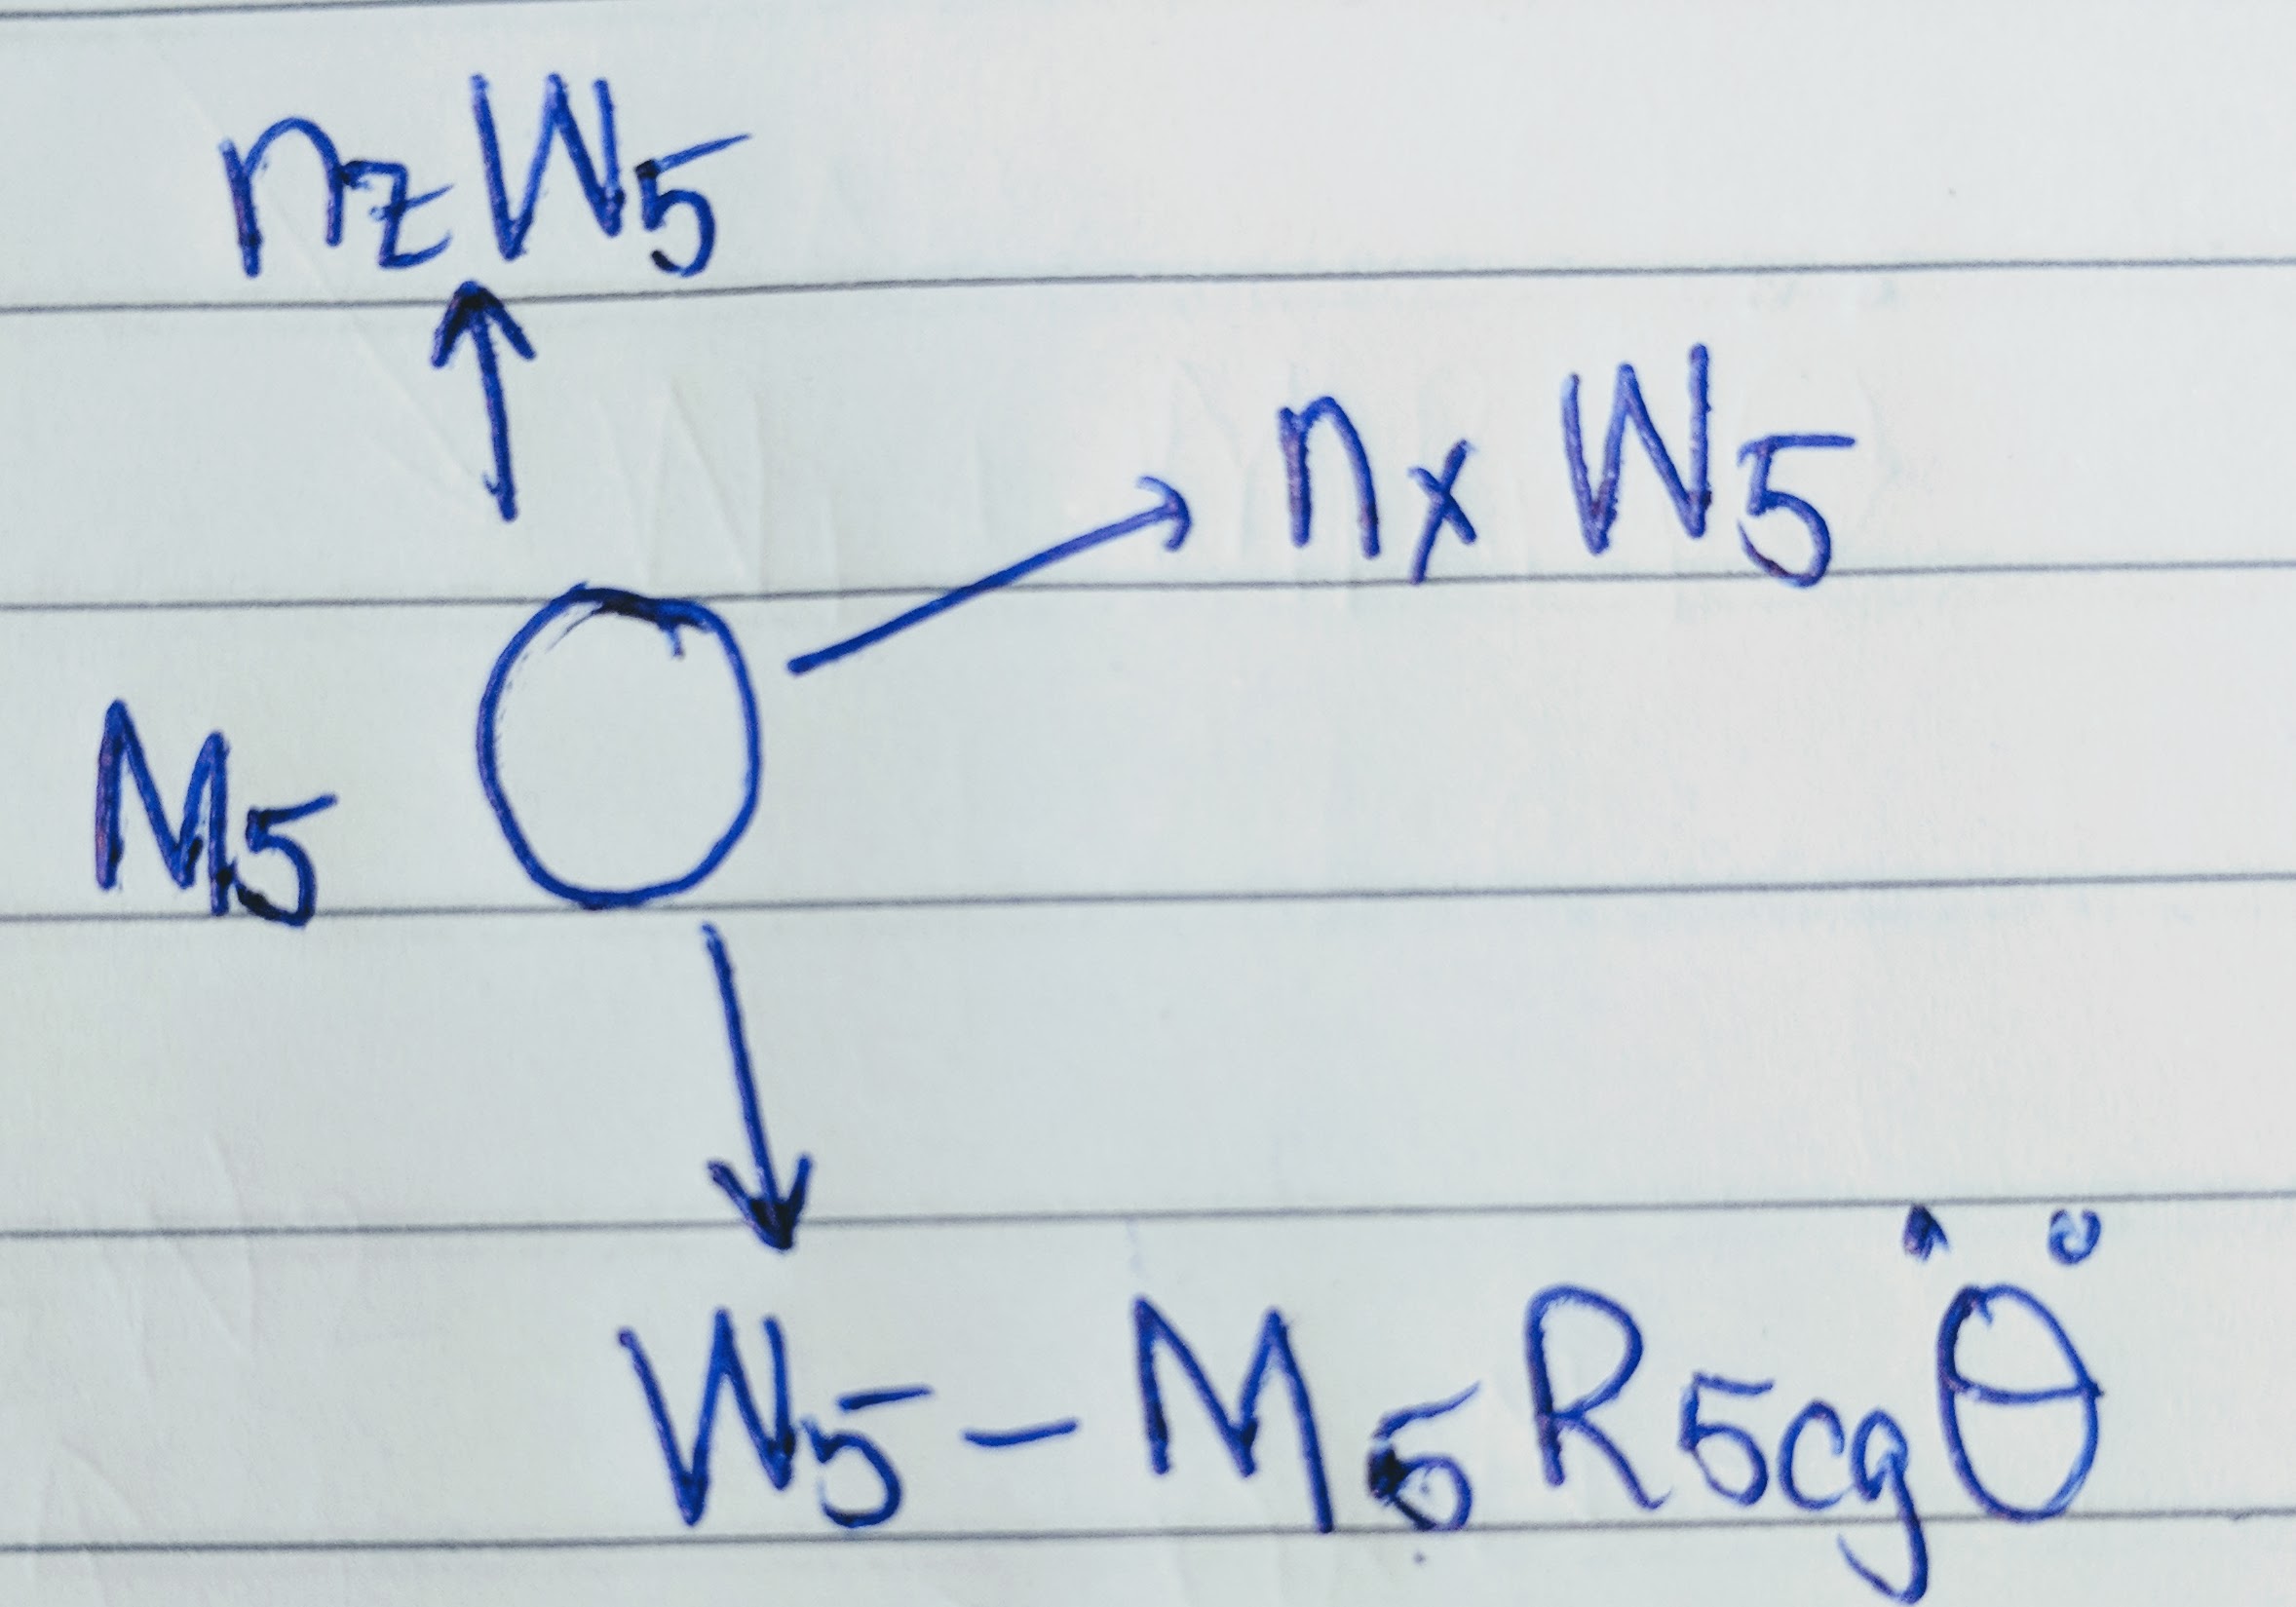 nzW5
nx W5
M5
W5 – M5R5cgθ̈